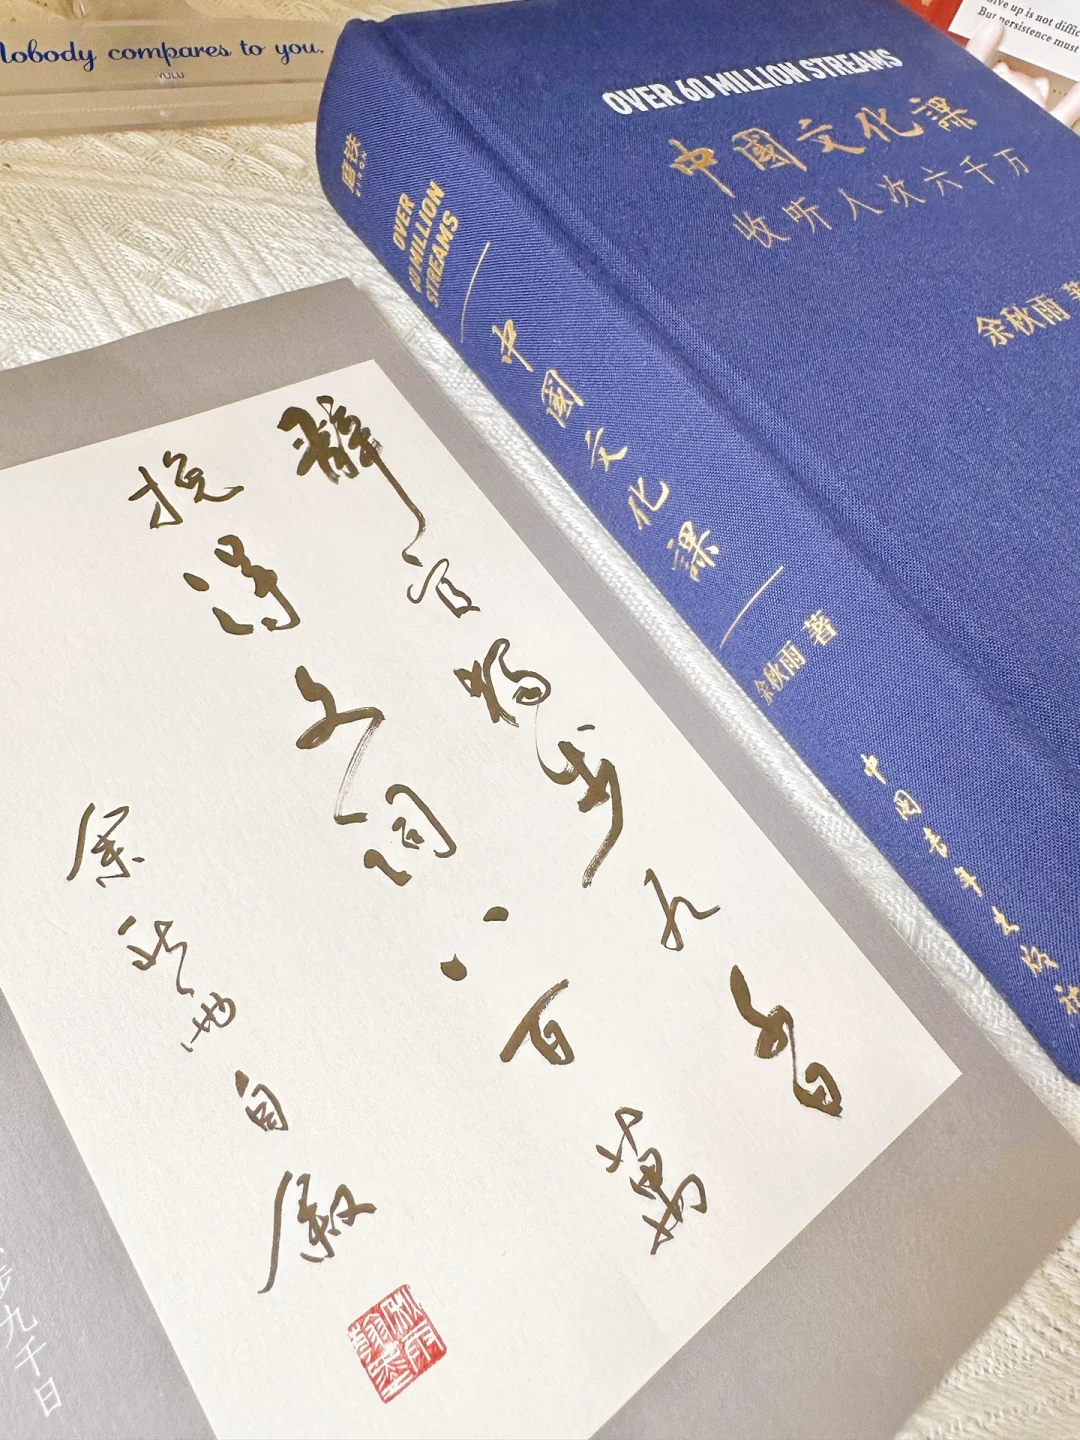 Nobody compares to you.
YULU
Give up is not diffic
But persistence must
OVER 60 MILLION STREAMS
中國文化課
收听人次六千万
余秋雨 著
磨铁
OVER
60 MILLION
STREAMS
中國文化課
余秋雨 著
中国青年出版社
辭官獨步九千日
換得文词八百萬
余秋雨自叙
步九千日